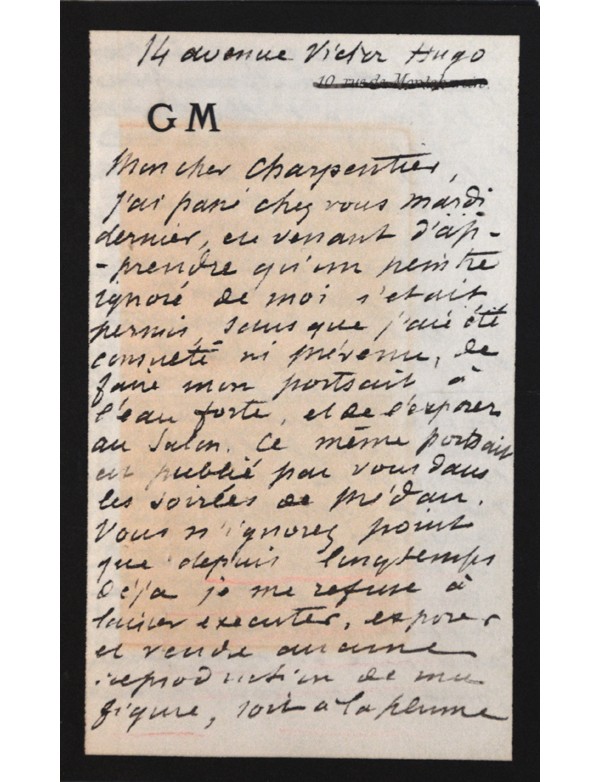 14 avenue Victor Hugo
10, rue de Montchanin.
GM
Mon cher Charpentier,
J'ai passé chez vous mardi
dernier, en venant d'ap-
-prendre qu'un peintre
ignoré de moi s'était
permis, sans que j'aie été
consulté ni prévenu, de
faire mon portrait à
l'eau forte, et de l'exposer
au Salon. Ce même portrait
est publié par vous dans
les soirées de Médan.
Vous n'ignorez point
que depuis longtemps
déja je me refuse à
laisser executer, exposer
et vendre aucune
reproduction de ma
figure, soit à la plume